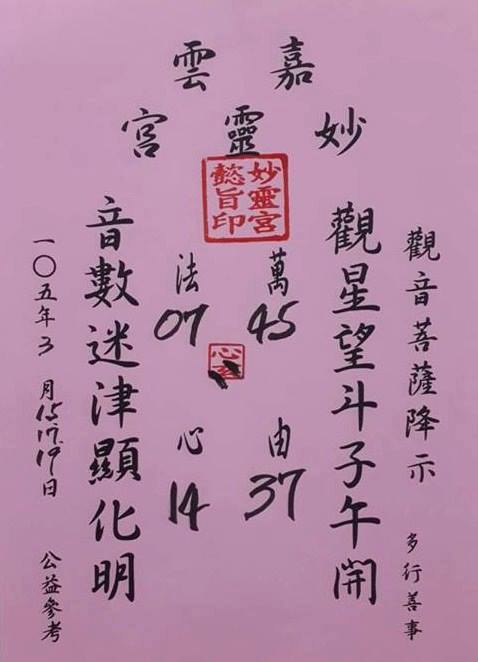 嘉雲
妙靈宮
妙靈宮
懿旨印
觀音菩薩降示 多行善事
觀星望斗子午開
萬 45
由 37
法 07
心 14
音數迷津顯化明
一〇五年3月15.17.19日 公益參考